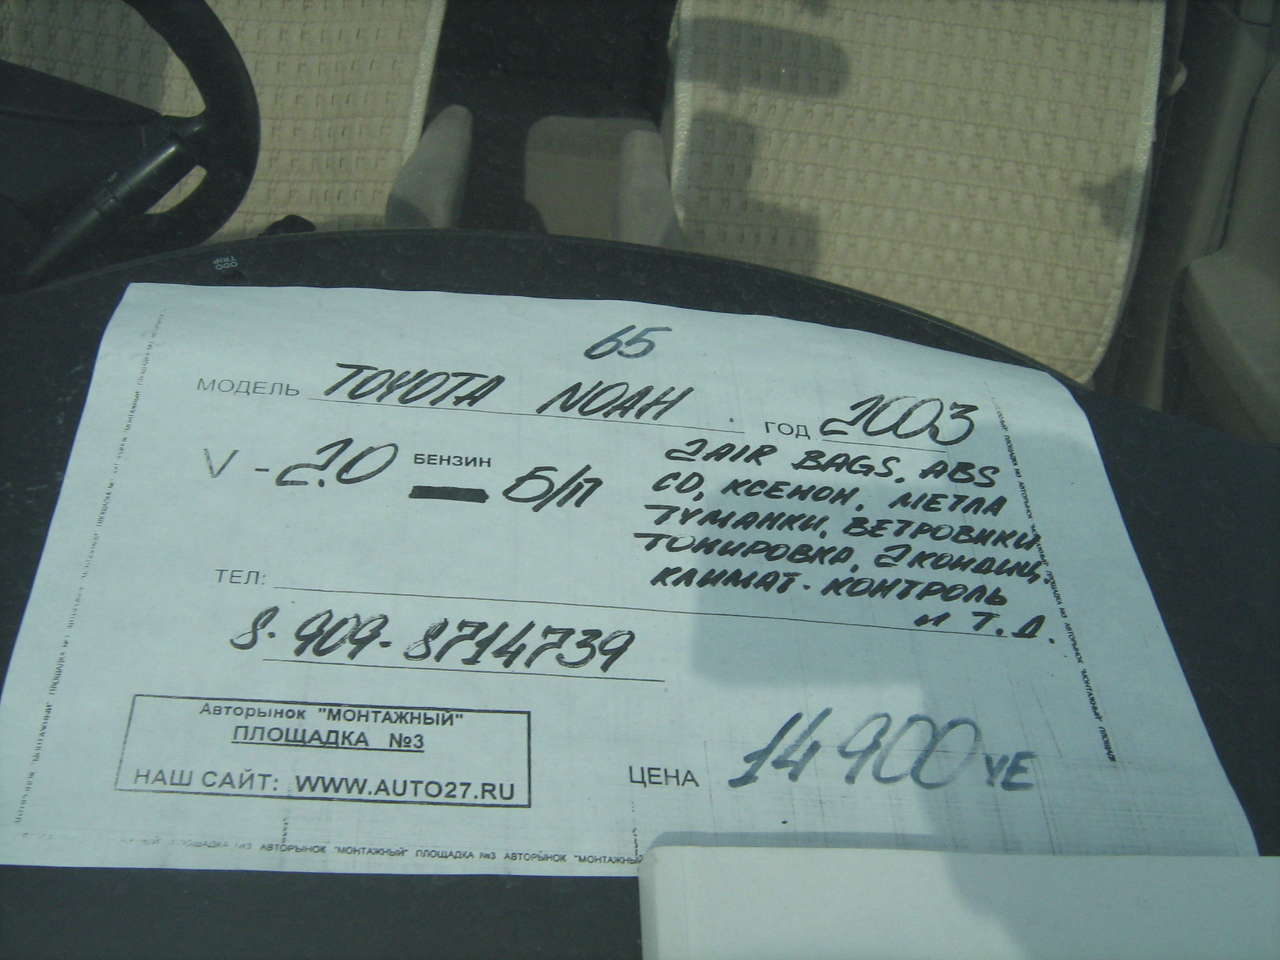 65
МОДЕЛЬ TOYOTA NOAH. ГОД 2003
V - 2.0 БЕНЗИН Б/П
2AIR BAGS, ABS
CD, КСЕНОН, МЕТЛА
ТУМАНКИ, ВЕТРОВИКИ
ТОНИРОВКА, 2 КОНДИЦ.
КЛИМАТ-КОНТРОЛЬ
и Т.Д.
ТЕЛ:
8-909-8714739
Авторынок "МОНТАЖНЫЙ"
ПЛОЩАДКА №3
НАШ САЙТ: WWW.AUTO27.RU
ЦЕНА 14900 УЕ
АВТОРЫНОК "МОНТАЖНЫЙ" ПЛОЩАДКА №3 АВТОРЫНОК "МОНТАЖНЫЙ